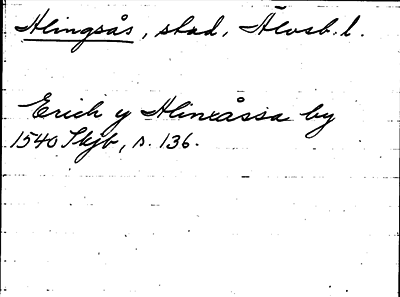 Alingsås, stad, Älvsb. l.
Erich y Alinxåssa by
1540 Skjb, s. 136.